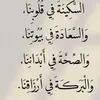 السَّكِينَةَ فِي قُلُوبِنَا.
وَالسَّعَادَةَ فِي بُيُوتِنَا.
وَالصِّحَّةَ فِي أَبْدَانِنَا.
وَالْبَرَكَةَ فِي أَرْزَاقِنَا.